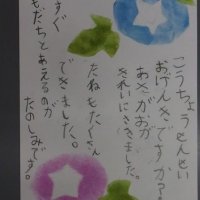 こうちょうせんせい
おげんきですか？
あさがおが
きれいにさきました。
たねもたくさん
できました。
すぐ
もだちとあえるのが
たのしみです。